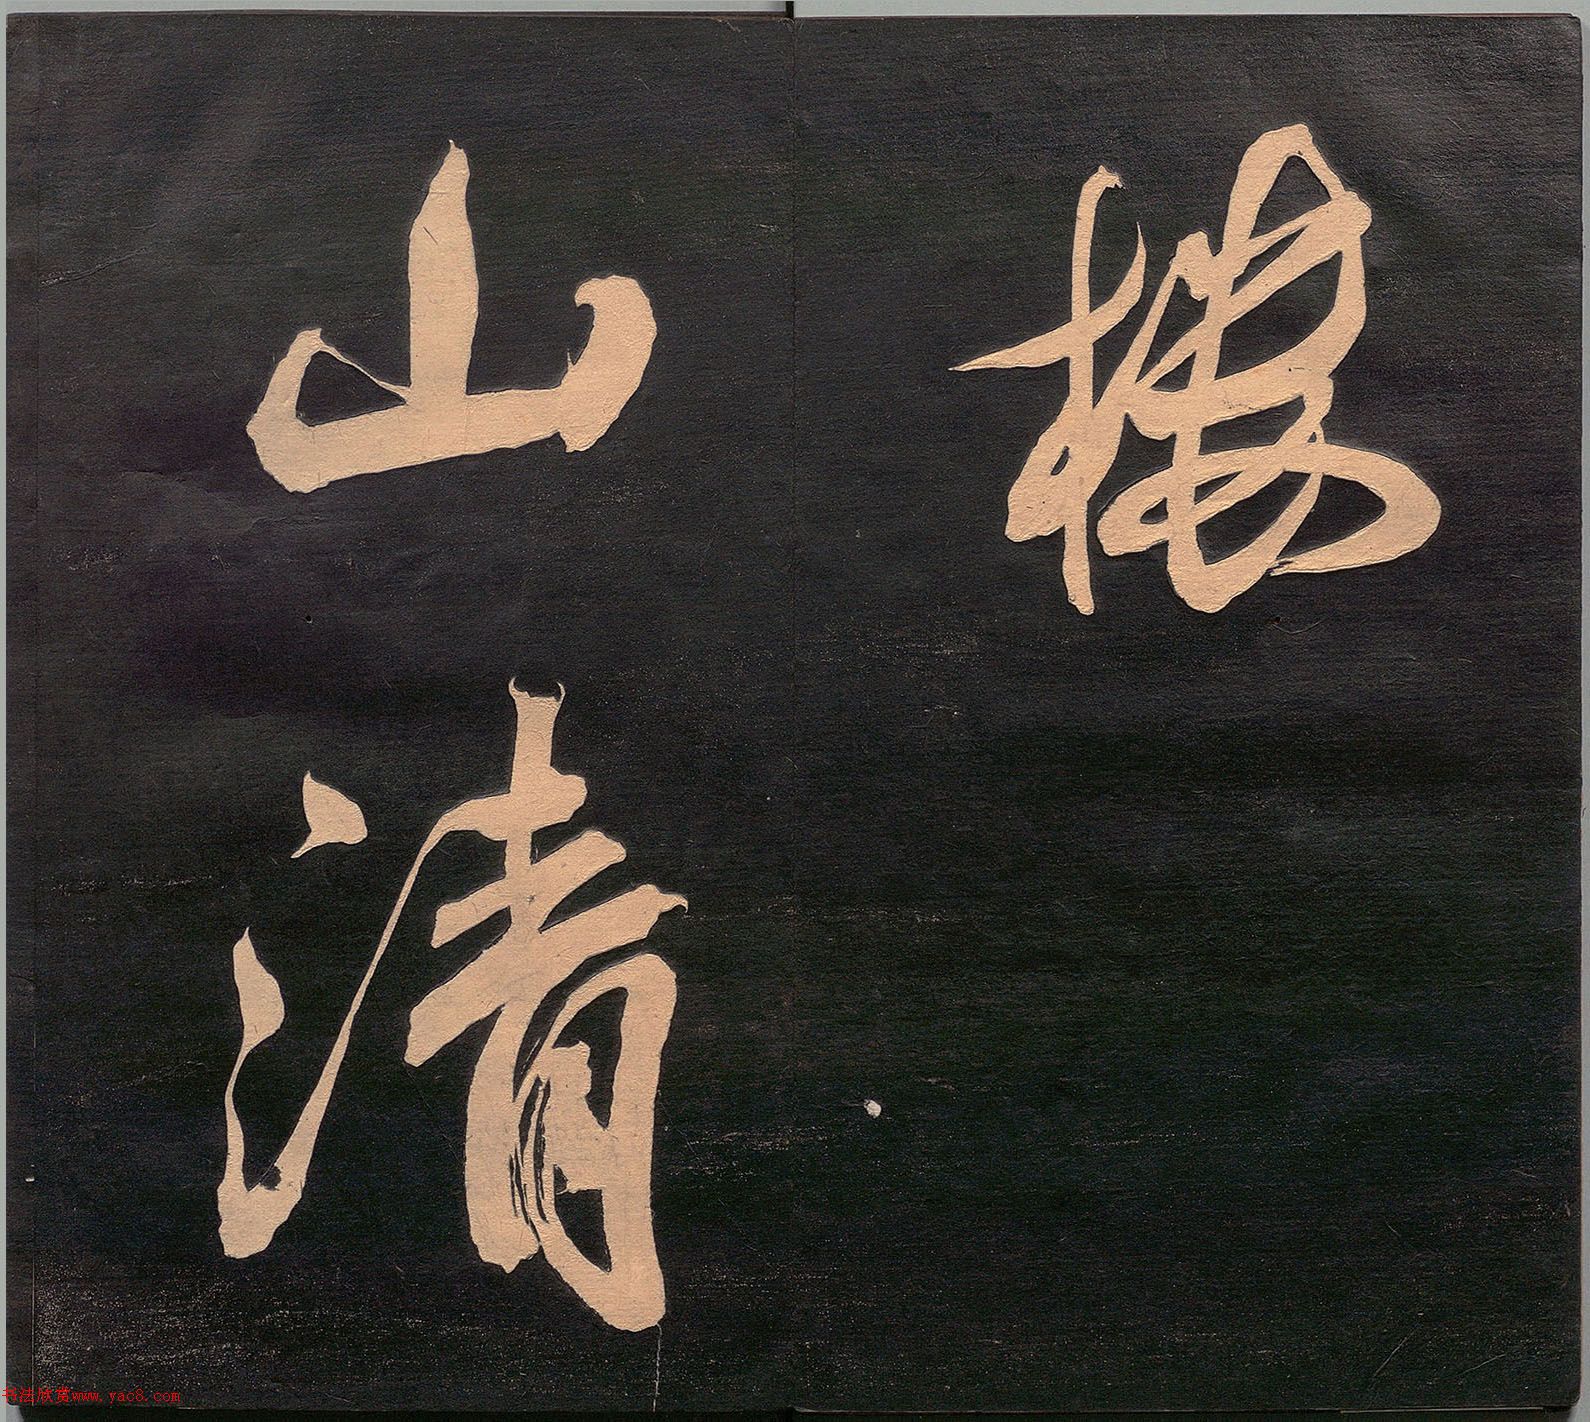 楼
山清
书法欣赏www.yac8.com